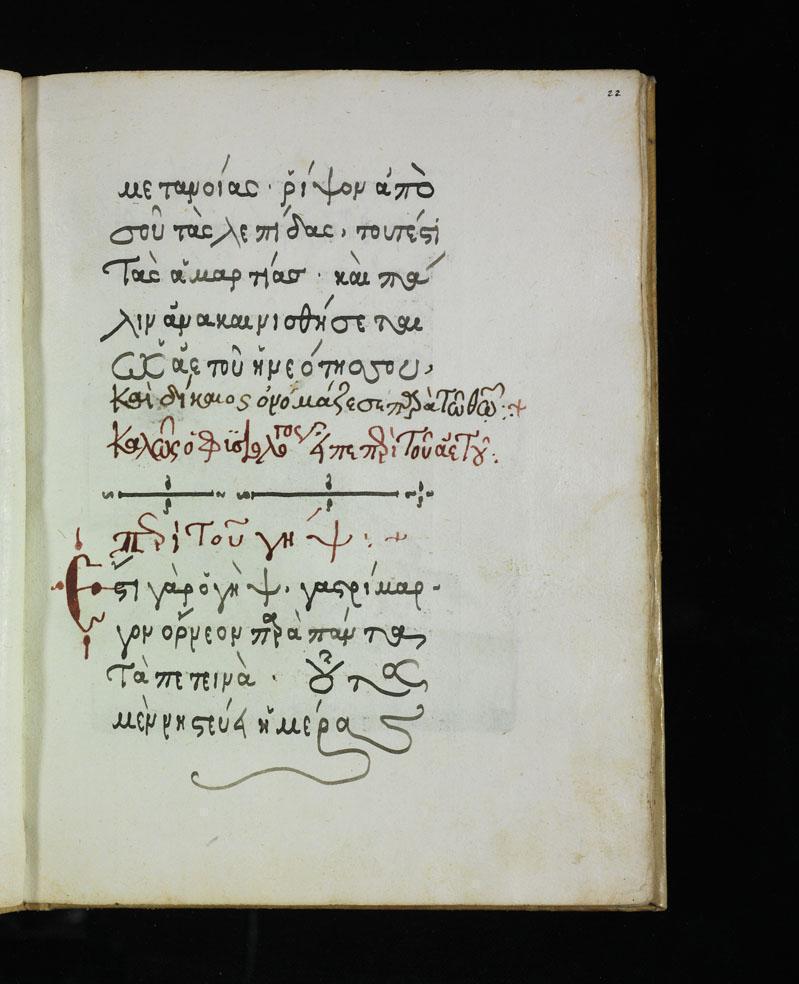 22
μετανοίας · ῥίψον ἀπὸ
σοῦ τὰς λεπίδας, τουτέστι
τὰς ἁμαρτίας · καὶ πά
λιν ἀνακαινισθήσεται
ὡς ἀετοῦ ἡ νεότης σου,
καὶ δίκαιος ὀνομάζεσε παρὰ τῶ θῶ :+
καλῶς ὁ φισιολόγος ἔλεξε περὶ τοῦ ἀετοῦ :
περὶ τοῦ γήψ : ~
Ἔστι γὰρ ὁ γὴψ, γαστρίμαρ-
γον ὄρνεον παρὰ πάντας
τὰ πετεινὰ · οὗτος
μὲν νηστεύει ἡμέρας